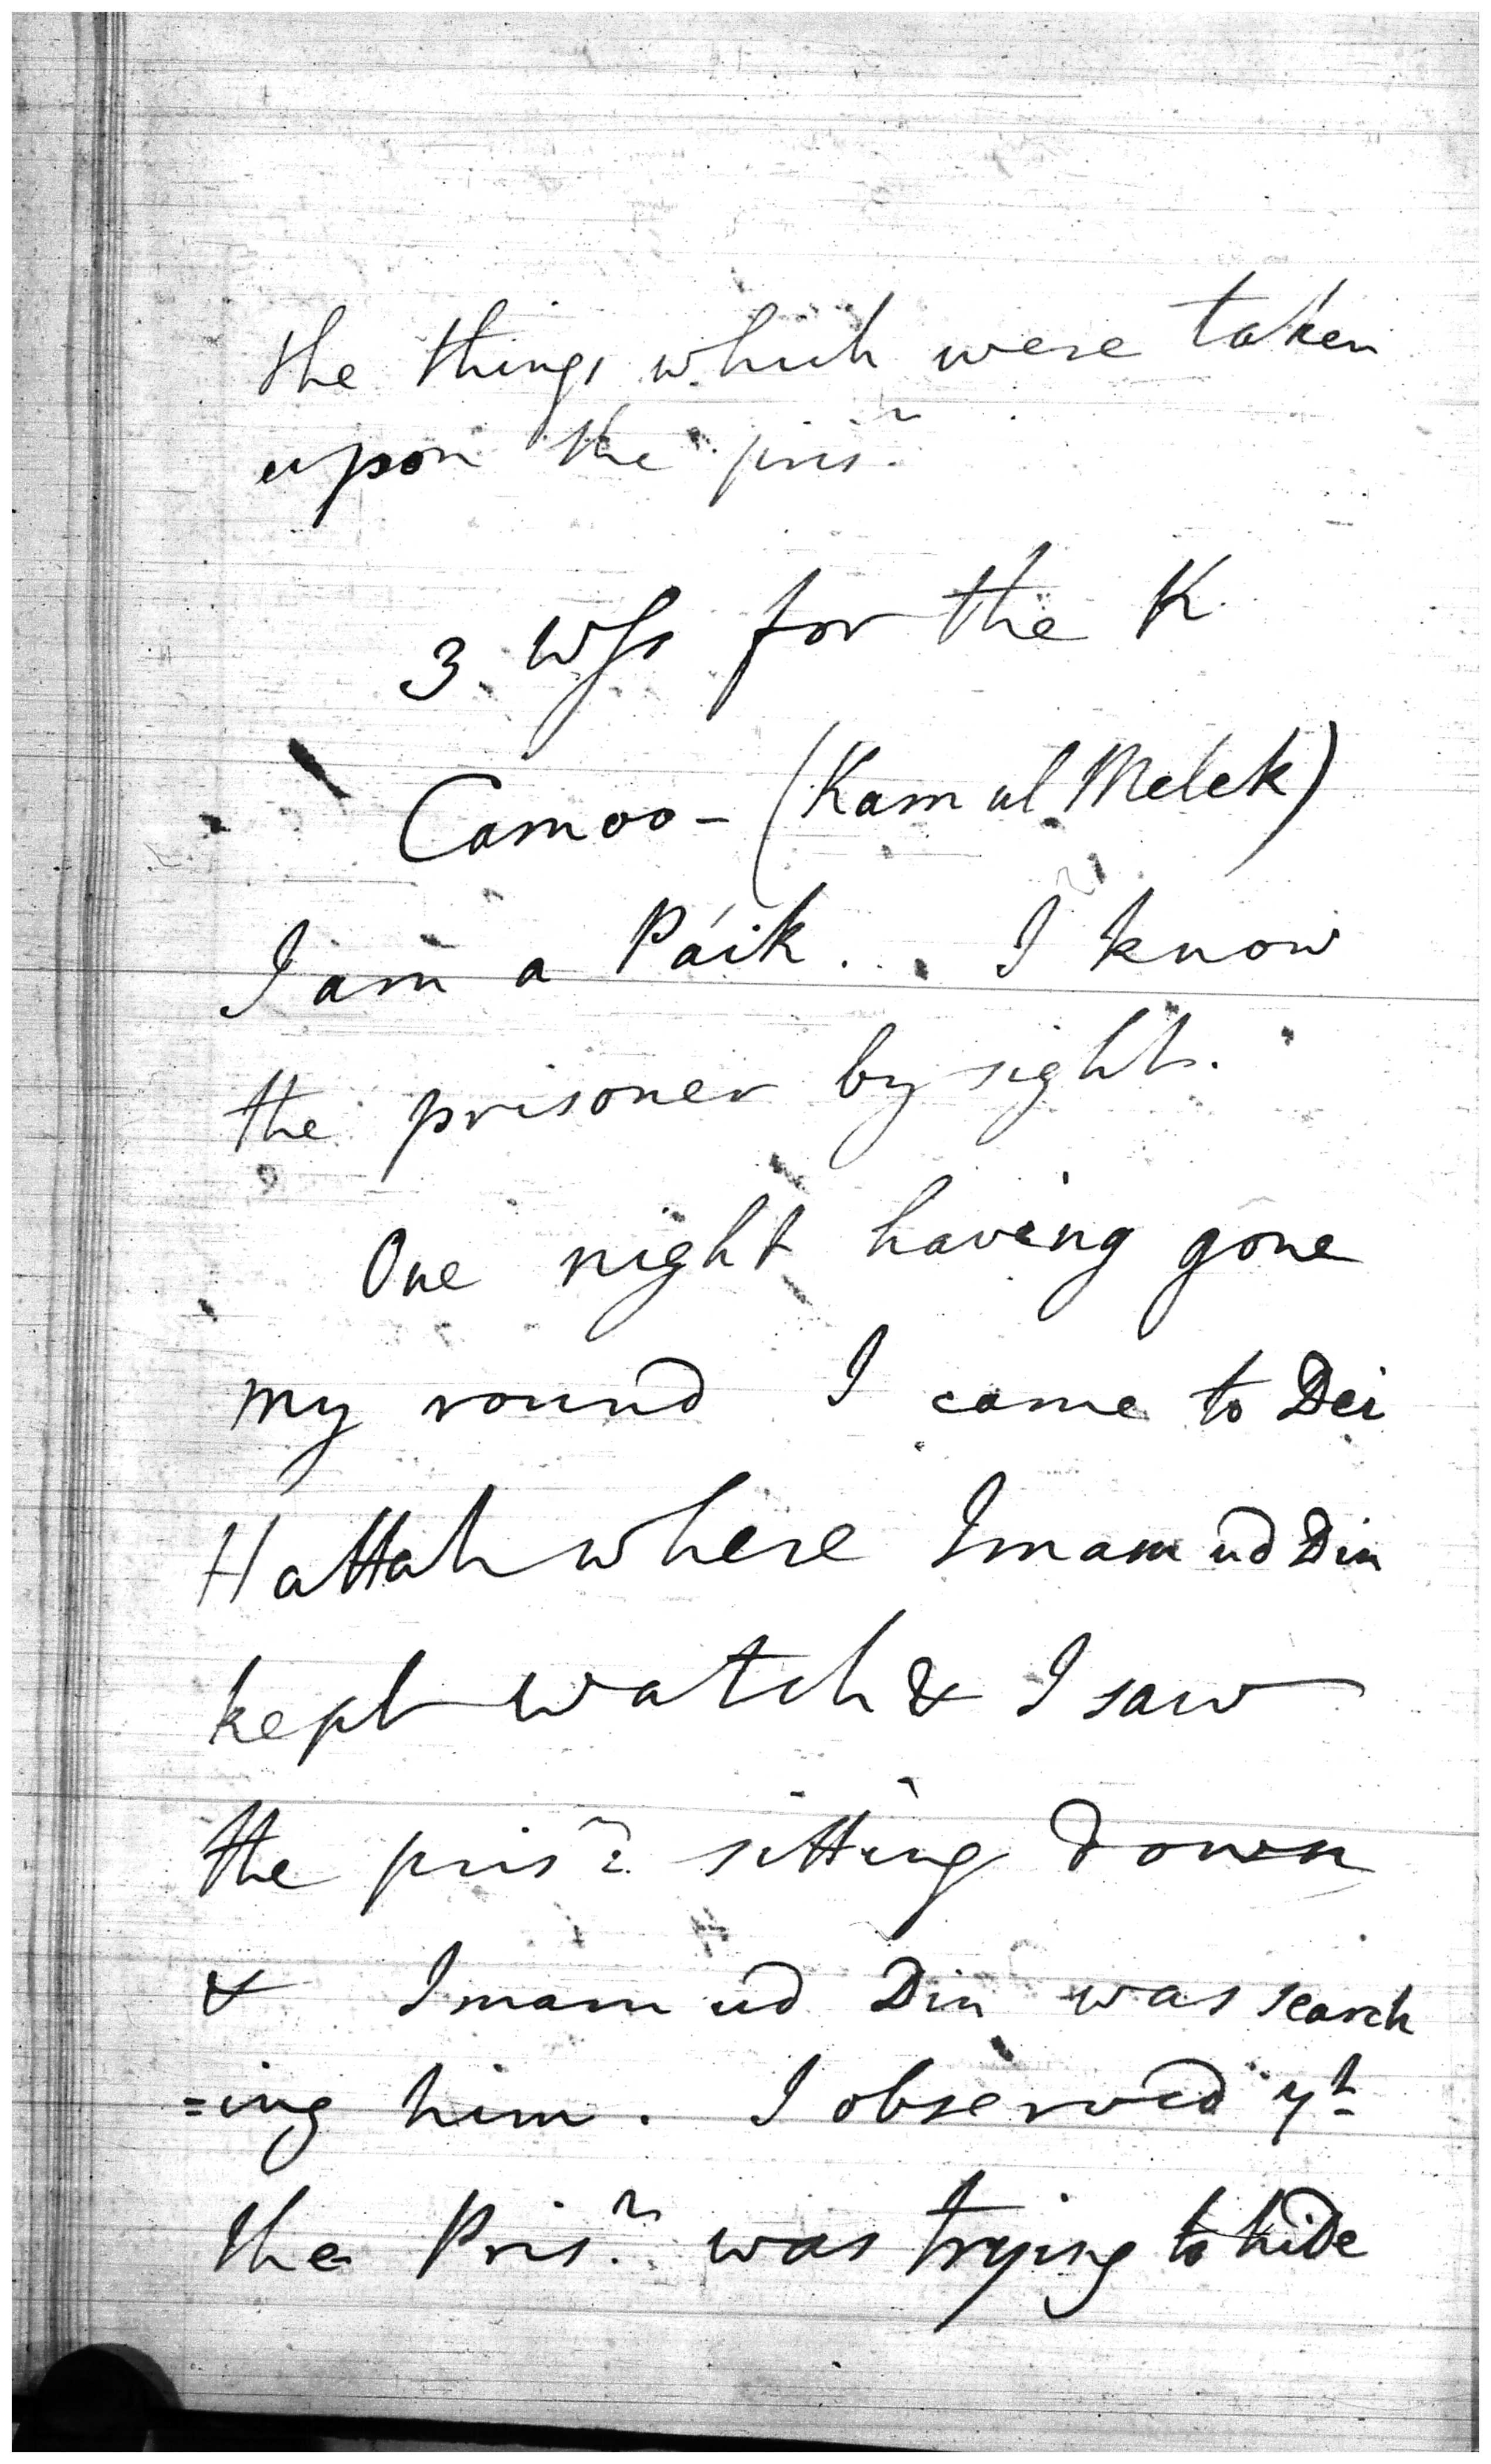 the things which were taken
upon the prisr.
3. Wss for the K.
Camoo - (Kam ul Melek)
I am a Páik. . . I know
the prisoner by sight.
One night having gone
my round I came to Dei
Hattah where Imam ud Din
kept watch & I saw
the prisr. sitting down
& Imam ud Din was search
=ing him. I observed yt
the Prisr. was trying to hide